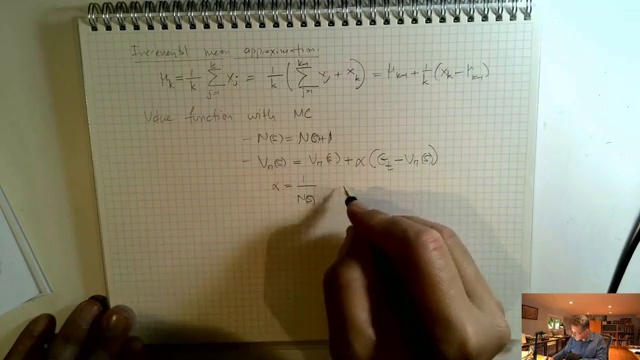 Incremental mean approximation:
μ_k = 1/k Σ_{j=1}^{k} x_j = 1/k ( Σ_{j=1}^{k-1} x_j + x_k ) = μ_{k-1} + 1/k ( x_k − μ_{k-1} )
Value function with MC
- N(s) = N(s)+1
- V_π(s) = V_π(s) + α ( G_t − V_π(s) )
α = 1/N(s)